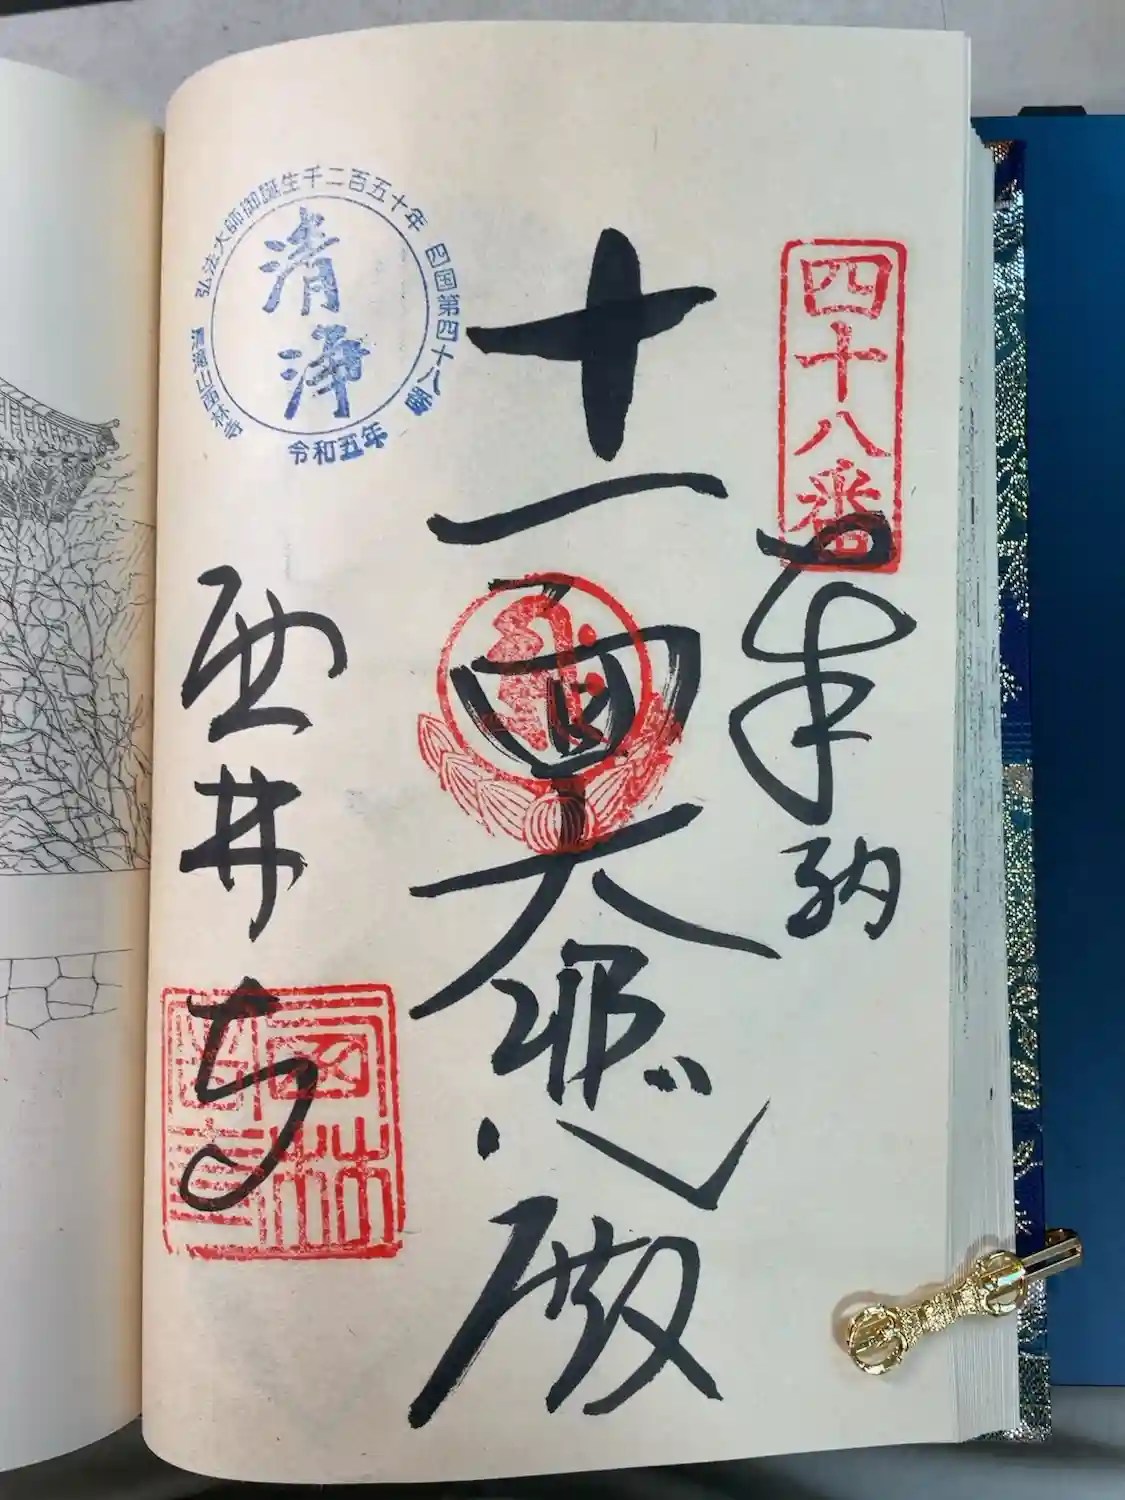 四十八番
奉納
十一面大悲殿
弘法大師御誕生千二百五十年
四国第四十八番
清浄
清滝山西林寺
令和五年
西林寺
西林寺